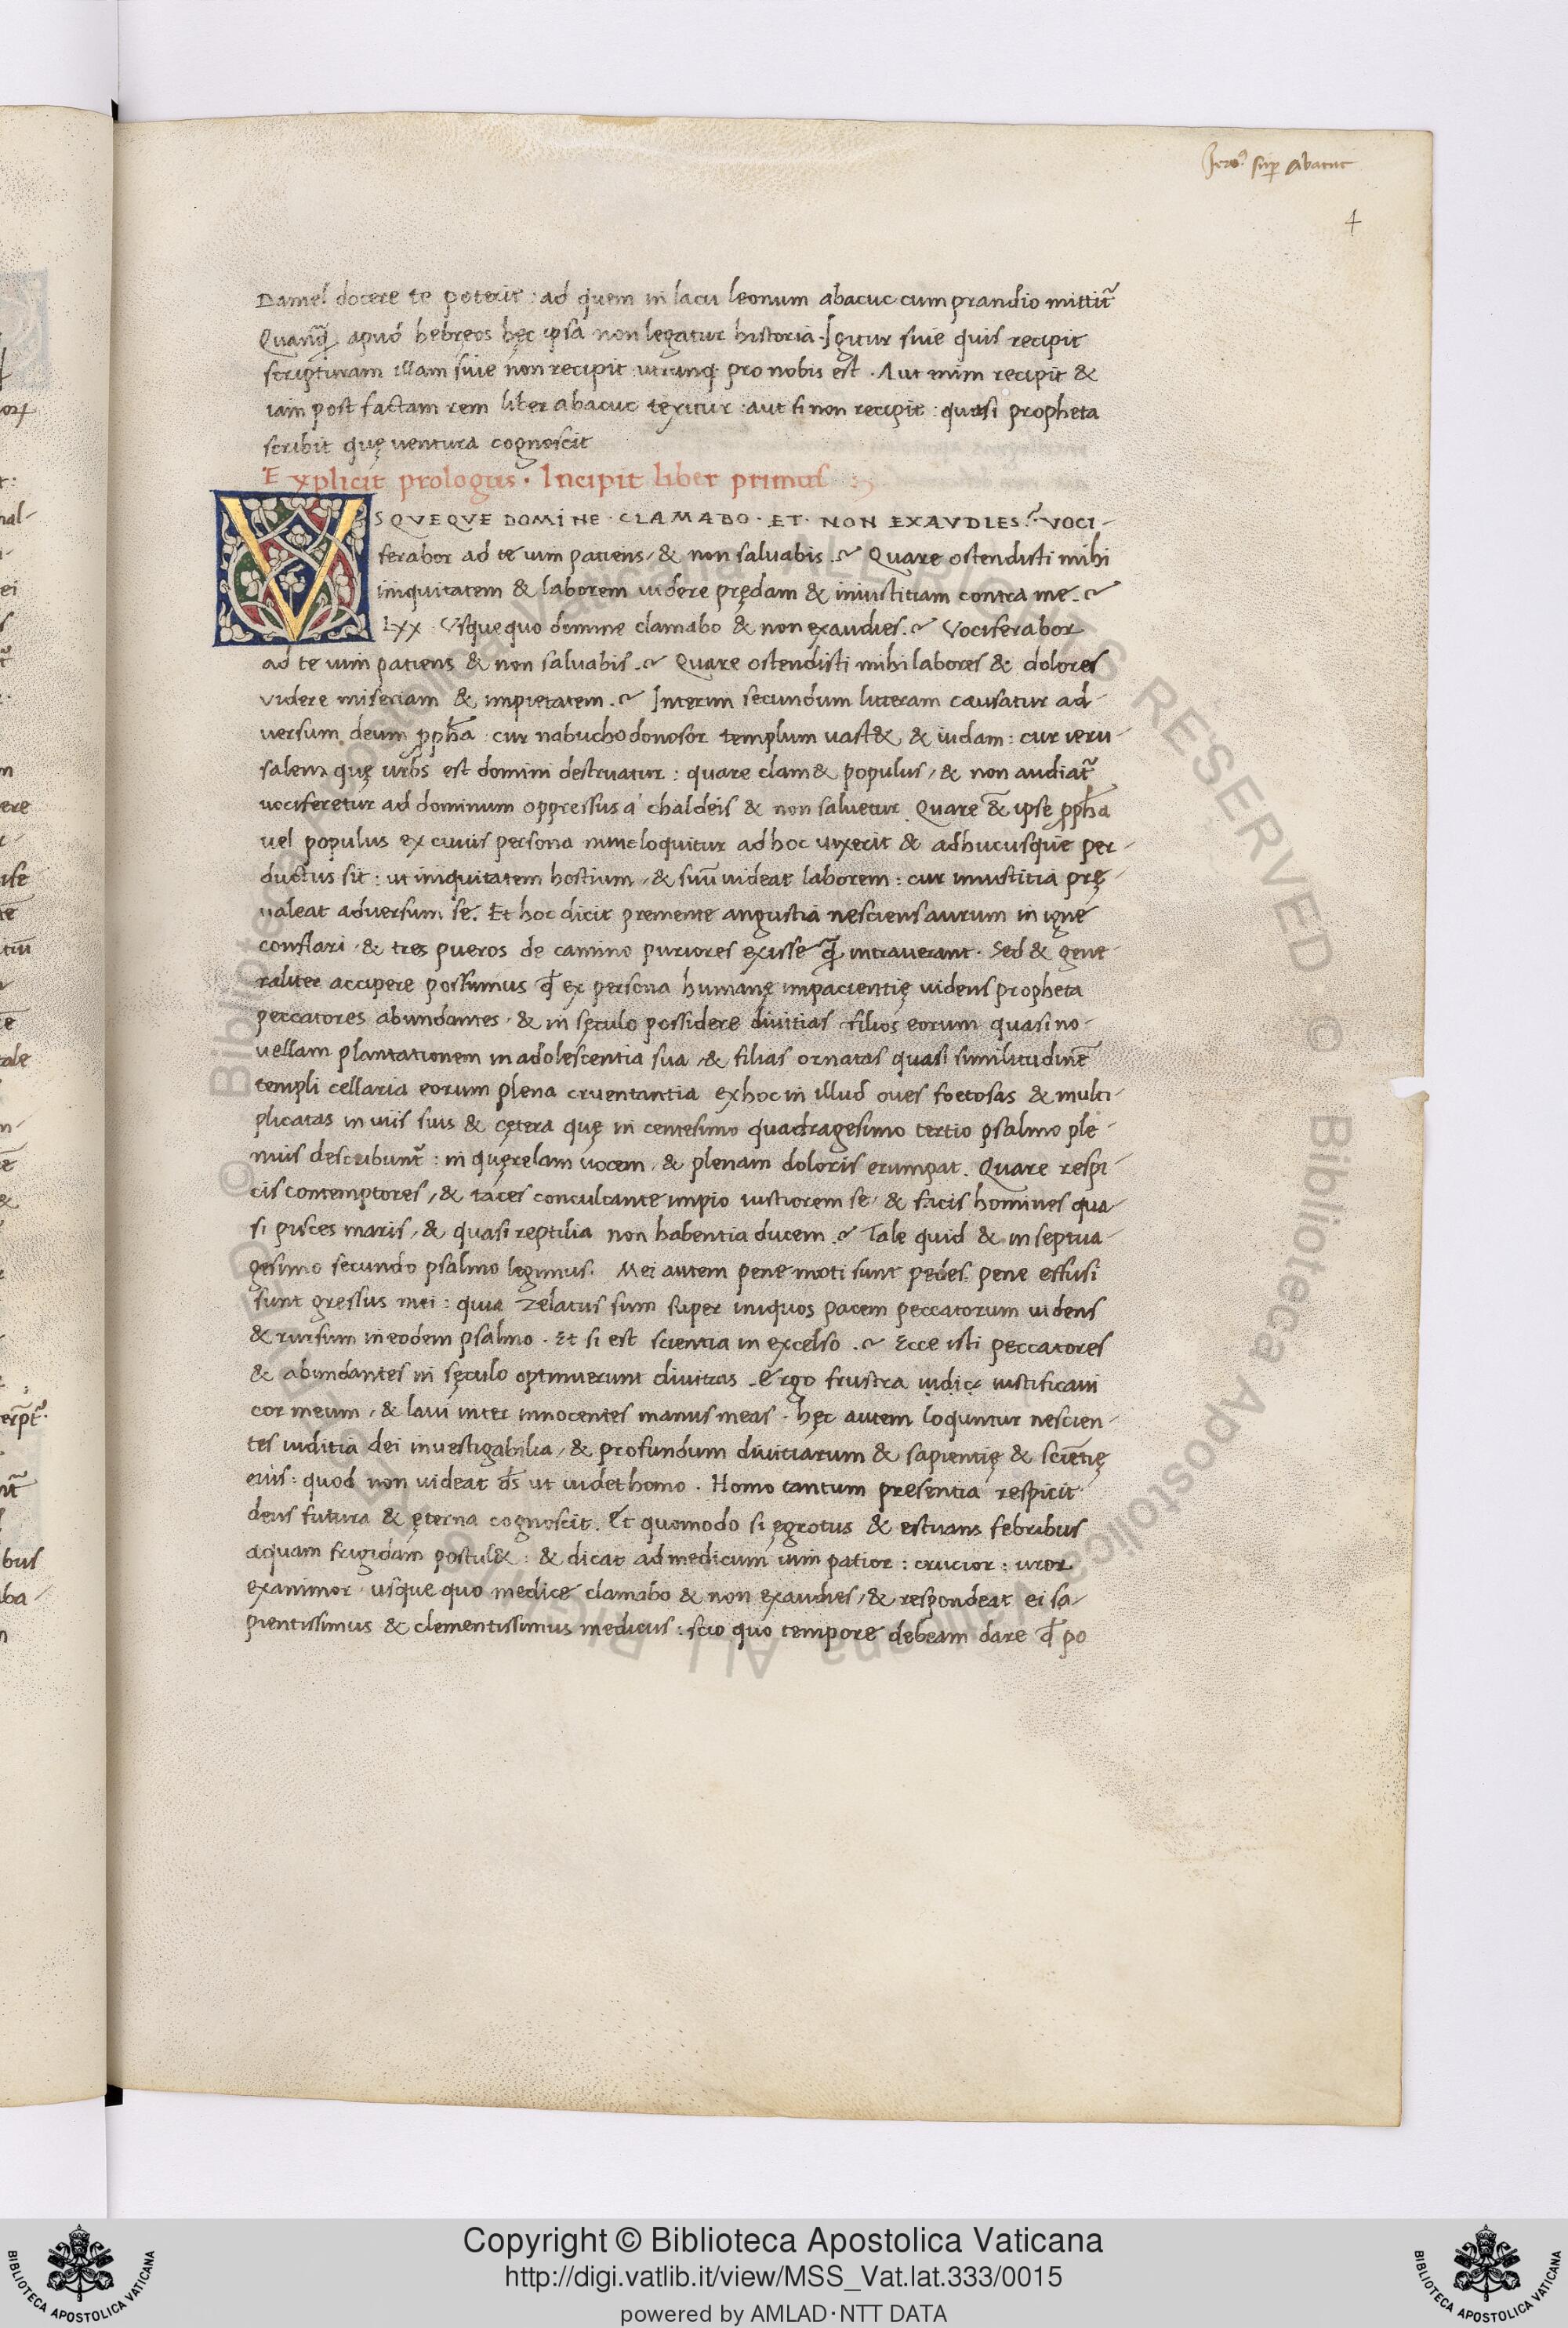 Jero᷒ sup Abacuc
4
Daniel docere te poterit : ad quem in lacu leonum abacuc cum prandio mittit᷒
Quanq̃ apud hebreos hęc ipsa non legatur historia. Igitur siue quis recipit
scripturam illam siue non recipit utrunq pro nobis est . Aut enim recipit &
iam post factam rem liber abacuc texitur : aut si non recipit : quasi propheta
scribit quę uentura cognoscit
Explicit prologus . Incipit liber primus
VSQVEQVE DOMINE . CLAMABO . ET . NON EXAVDIES? VOCI-
ferabor ad te uim patiens, & non saluabis .~ Quare ostendisti mihi
iniquitatem & laborem uidere prędam & iniustitiam contra me .~
Lxx . Vsquequo domine clamabo & non exaudies .~ Vociferabor
ad te uim patiens & non saluabis .~ Quare ostendisti mihi labores & dolores
videre miseriam & impietatem .~ Interim secundum litteram causatur ad-
versum deum ꝓph̃a cur nabuchodonosor templum uast& & iudam : cur ieru-
salem quę urbs est domini destruatur : quare clam& populus, & non audiat᷒
uociferetur ad dominum oppressus a chaldeis & non saluetur . Quare & ipse ꝓph̃a
uel populus ex cuius persona nunc loquitur ad hoc uixerit & adhucusque per-
ductus sit : ut iniquitatem hostium, & suū uideat laborem : cur iniustitia prę-
ualeat adversum se. Et hoc dicit premente angustia nesciens aurum in igne
conflari, & tres pueros de camino puriores exisse q̃ intrauerant . Sed & gene
raliter accipere possumus q̃ ex persona humanę impacientię uidens propheta
peccatores abundantes, & in sęculo possidere diuitias filios eorum quasi no-
uellam plantationem in adolescentia sua, & filias ornatas quasi similitudinē
templi cellaria eorum plena eruentantia ex hoc in illud oues foetosas & multi-
plicatas in uiis suis & cętera quę in centesimo quadragesimo tertio psalmo ple-
nius describunt᷒ : in quęrelam uocem, & plenam doloris erumpat . Quare respi-
cis contemptores, & taces conculcante impio iustiorem se, & facis homines qua-
si pisces maris, & quasi reptilia non habentia ducem .~ Tale quid & in septua-
gesimo secundo psalmo legimus. Mei autem pene moti sunt pedes. pene effusi
sunt gressus mei : quia zelatus sum super iniquos pacem peccatorum uidens
& rursum in eodem psalmo . Et si est scientia in excelso .~ Ecce isti peccatores
& abundantes in sęculo optinuerunt diuitias . Ergo frustra iustificaui
cor meum, & laui inter innocentes manus meas . hęc autem loquntur nescien-
tes iuditia dei inuestigabilia, & profundum diuitiarum & sapientię & scientię
eius : quod non uideat d̃s ut uidet homo . Homo tantum presentia respicit
deus futura & ęterna cognoscit . Et quomodo si ęgrotus & estuans febribus
aquam frigidam postul& : & dicat ad medicum uim patior : crucior : uror
exanimor usque quo medice clamabo & non exaudies, & respondeat ei sa-
pientissimus & clementissimus medicus : scio quo tempore debeam dare q̃ po
Copyright © Biblioteca Apostolica Vaticana
http://digi.vatlib.it/view/MSS_Vat.lat.333/0015
powered by AMLAD·NTT DATA